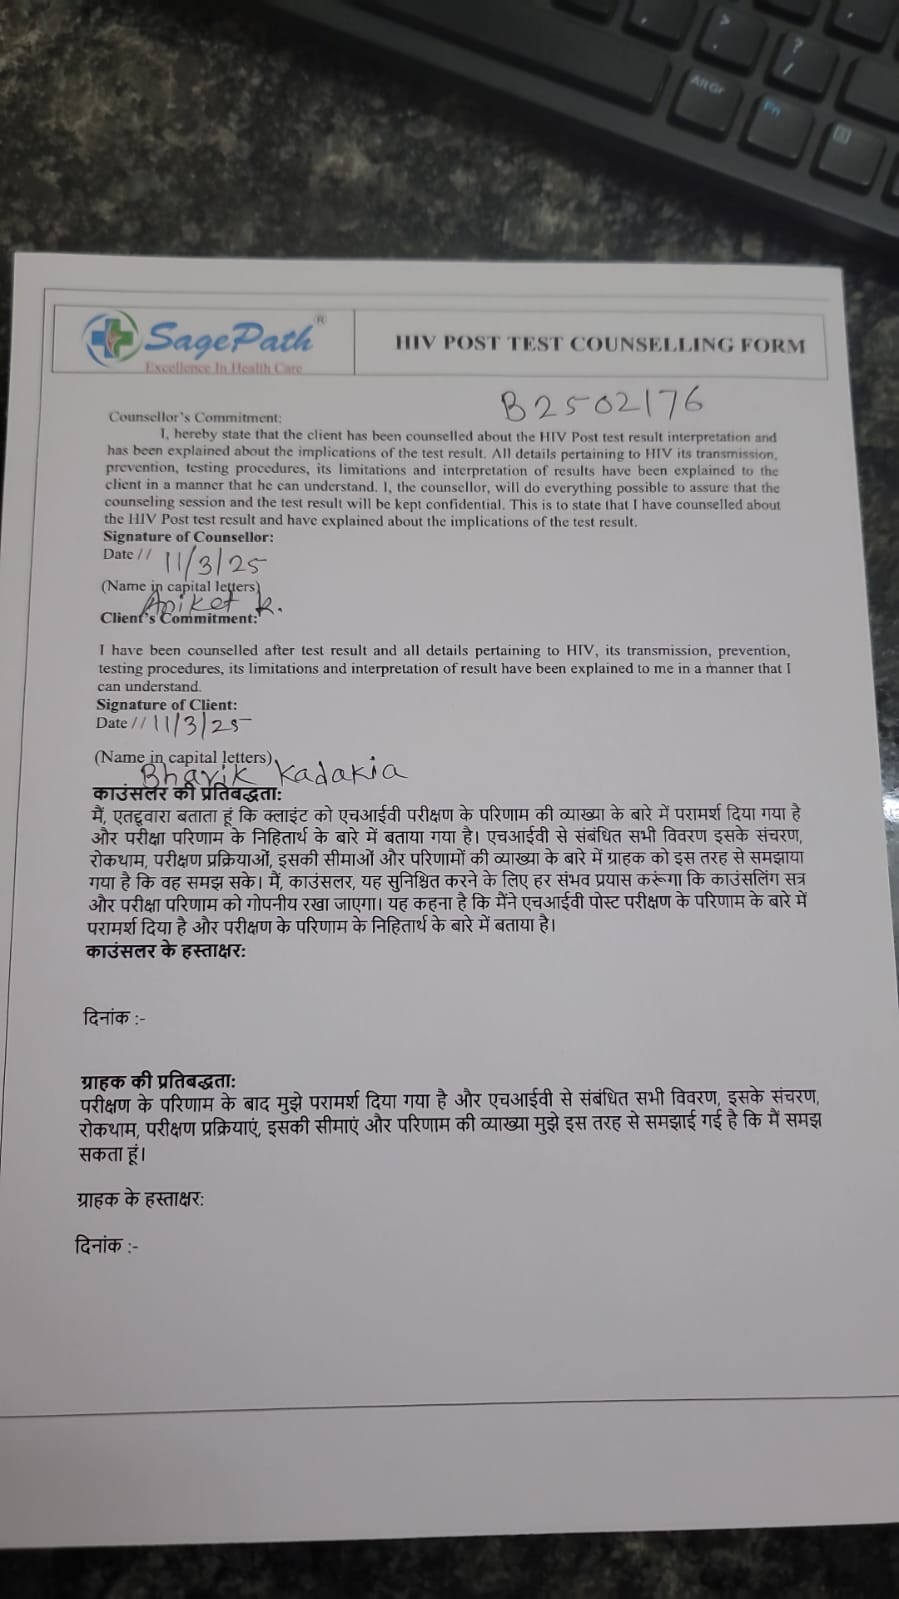 SagePath®
Excellence In Health Care
HIV POST TEST COUNSELLING FORM
B2502176
Counsellor's Commitment:
I, hereby state that the client has been counselled about the HIV Post test result interpretation and
has been explained about the implications of the test result. All details pertaining to HIV its transmission,
prevention, testing procedures, its limitations and interpretation of results have been explained to the
client in a manner that he can understand. I, the counsellor, will do everything possible to assure that the
counseling session and the test result will be kept confidential. This is to state that I have counselled about
the HIV Post test result and have explained about the implications of the test result.
Signature of Counsellor:
Date // 11/3/25
(Name in capital letters)
Aniket R.
Client's Commitment:
I have been counselled after test result and all details pertaining to HIV, its transmission, prevention,
testing procedures, its limitations and interpretation of result have been explained to me in a manner that I
can understand.
Signature of Client:
Date // 11/3/25
(Name in capital letters)
Bhavik Kadakia
काउंसलर की प्रतिबद्धता:
मैं, एतद्द्वारा बताता हूं कि क्लाइंट को एचआईवी परीक्षण के परिणाम की व्याख्या के बारे में परामर्श दिया गया है
और परीक्षा परिणाम के निहितार्थ के बारे में बताया गया है। एचआईवी से संबंधित सभी विवरण इसके संचरण,
रोकथाम, परीक्षण प्रक्रियाओं, इसकी सीमाओं और परिणामों की व्याख्या के बारे में ग्राहक को इस तरह से समझाया
गया है कि वह समझ सके। मैं, काउंसलर, यह सुनिश्चित करने के लिए हर संभव प्रयास करूंगा कि काउंसलिंग सत्र
और परीक्षा परिणाम को गोपनीय रखा जाएगा। यह कहना है कि मैंने एचआईवी पोस्ट परीक्षण के परिणाम के बारे में
परामर्श दिया है और परीक्षण के परिणाम के निहितार्थ के बारे में बताया है।
काउंसलर के हस्ताक्षर:
दिनांक :-
ग्राहक की प्रतिबद्धता:
परीक्षण के परिणाम के बाद मुझे परामर्श दिया गया है और एचआईवी से संबंधित सभी विवरण, इसके संचरण,
रोकथाम, परीक्षण प्रक्रियाएं, इसकी सीमाएं और परिणाम की व्याख्या मुझे इस तरह से समझाई गई है कि मैं समझ
सकता हूं।
ग्राहक के हस्ताक्षर:
दिनांक :-
AltGr
Fn